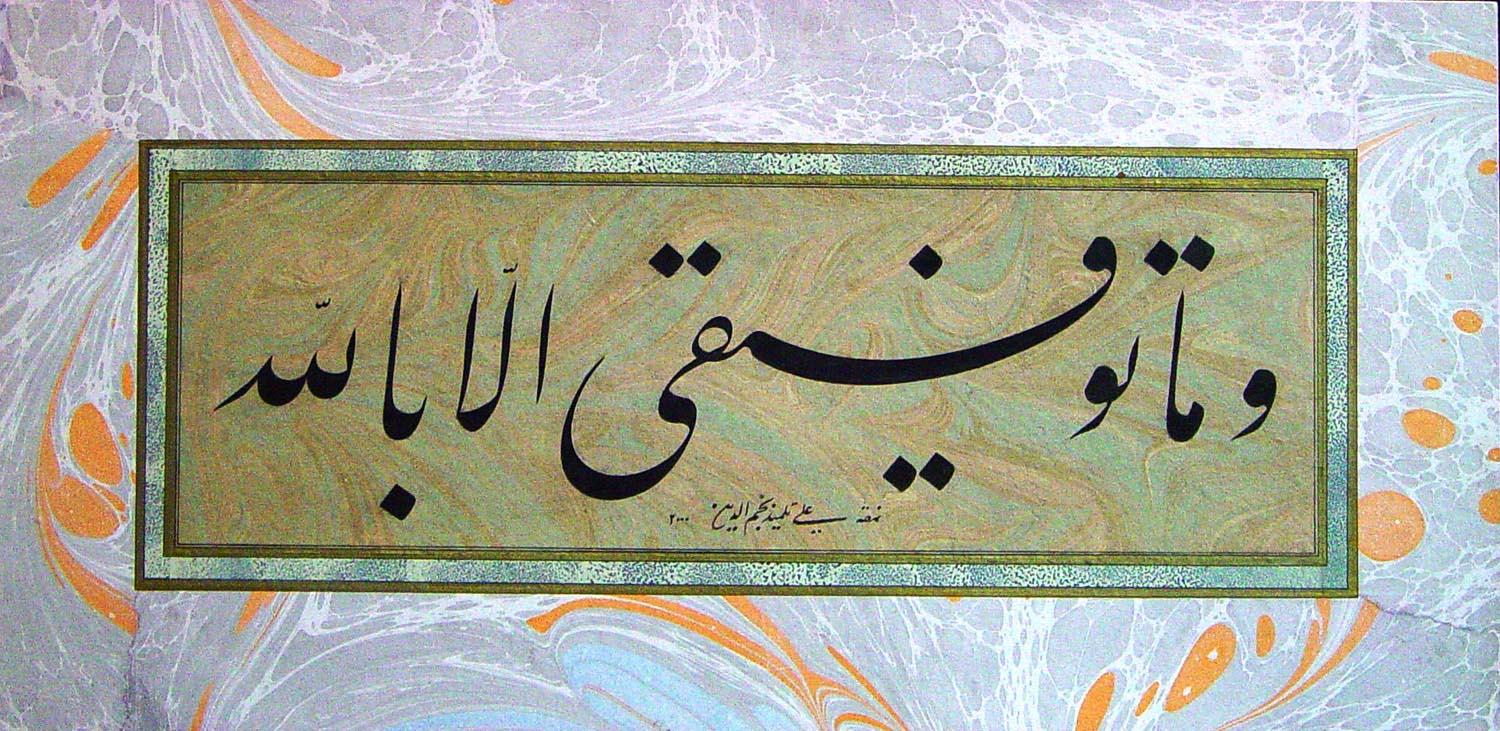 وما توفيقى الّا بالله
نمقه على تلميذ نجم الدين ٢٠٠٠